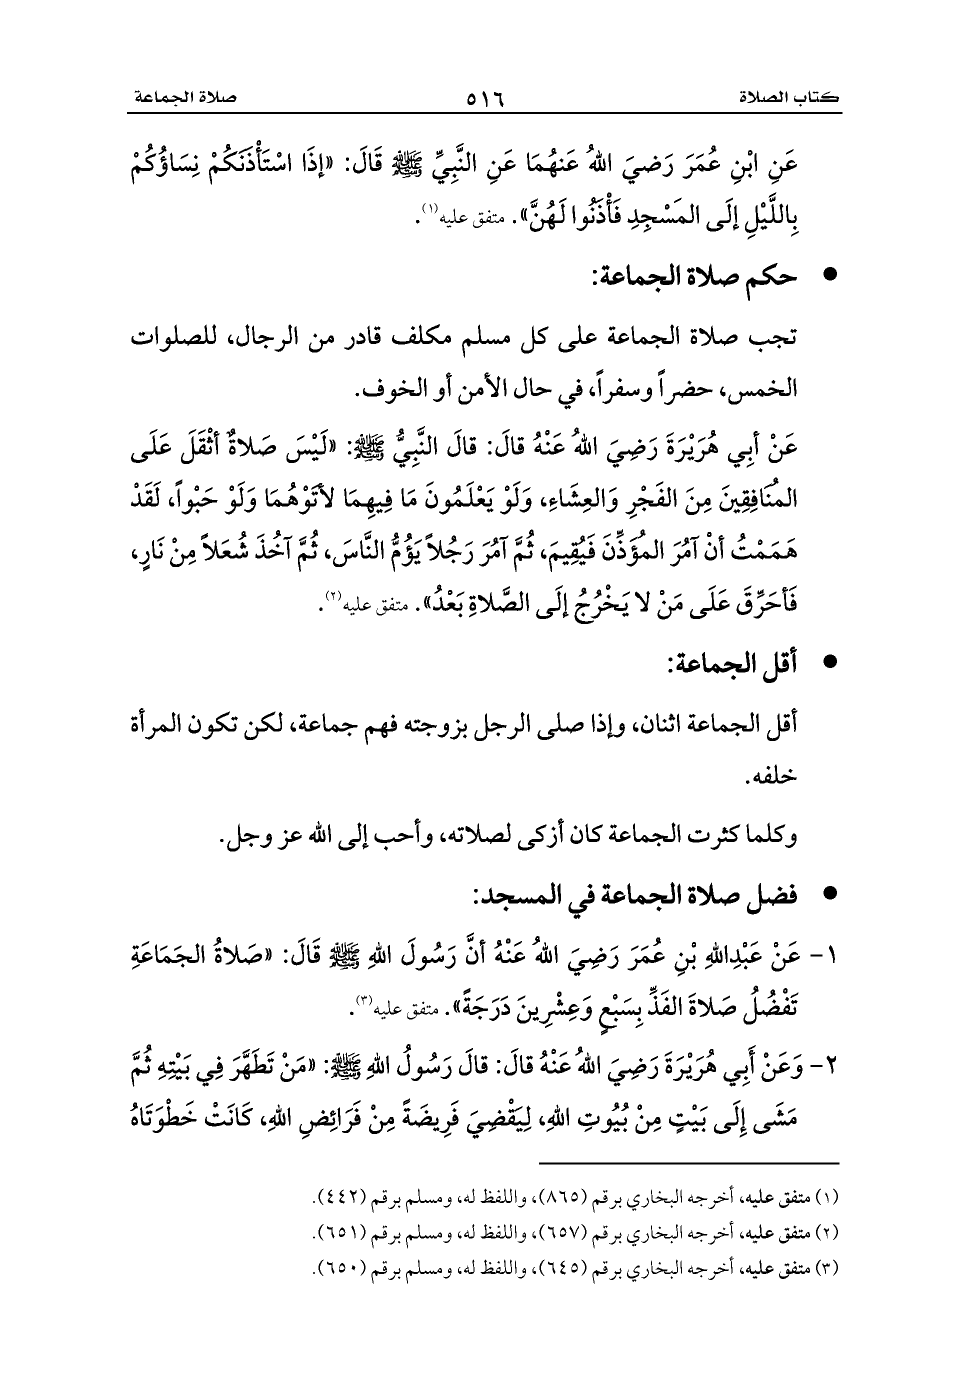 كتاب الصلاة ٥١٦ صلاة الجماعة
عَنِ ابْنِ عُمَرَ رَضيَ اللهُ عَنهُمَا عَنِ النَّبِيِّ ﷺ قَالَ: «إذَا اسْتَأْذَنَكُمْ نِسَاؤُكُمْ
بِاللَّيْلِ إلَى المَسْجِدِ فَأْذَنُوا لَهُنَّ». متفق عليه(١).
● حكم صلاة الجماعة:
تجب صلاة الجماعة على كل مسلم مكلف قادر من الرجال، للصلوات
الخمس، حضراً وسفراً، في حال الأمن أو الخوف.
عَنْ أبِي هُرَيْرَةَ رَضِيَ اللهُ عَنْهُ قالَ: قالَ النَّبِيُّ ﷺ: «لَيْسَ صَلاةٌ أثْقَلَ عَلَى
المُنَافِقِينَ مِنَ الفَجْرِ وَالعِشَاءِ، وَلَوْ يَعْلَمُونَ مَا فِيهِمَا لأتَوْهُمَا وَلَوْ حَبْواً، لَقَدْ
هَمَمْتُ أنْ آمُرَ المُؤَذِّنَ فَيُقِيمَ، ثُمَّ آمُرَ رَجُلاً يَؤُمُّ النَّاسَ، ثُمَّ آخُذَ شُعَلاً مِنْ نَارٍ،
فَأحَرِّقَ عَلَى مَنْ لا يَخْرُجُ إلَى الصَّلاةِ بَعْدُ». متفق عليه(٢).
● أقل الجماعة:
أقل الجماعة اثنان، وإذا صلى الرجل بزوجته فهم جماعة، لكن تكون المرأة
خلفه.
وكلما كثرت الجماعة كان أزكى لصلاته، وأحب إلى الله عز وجل.
● فضل صلاة الجماعة في المسجد:
١- عَنْ عَبْدِاللهِ بْنِ عُمَرَ رَضِيَ اللهُ عَنْهُ أنَّ رَسُولَ اللهِ ﷺ قَالَ: «صَلاةُ الجَمَاعَةِ
تَفْضُلُ صَلاةَ الفَذِّ بِسَبْعٍ وَعِشْرِينَ دَرَجَةً». متفق عليه(٣).
٢- وَعَنْ أَبِي هُرَيْرَةَ رَضِيَ اللهُ عَنْهُ قالَ: قالَ رَسُولُ اللهِ ﷺ: «مَنْ تَطَهَّرَ فِي بَيْتِهِ ثُمَّ
مَشَى إلَى بَيْتٍ مِنْ بُيُوتِ اللهِ، لِيَقْضِيَ فَرِيضَةً مِنْ فَرَائِضِ اللهِ، كَانَتْ خَطْوَتَاهُ
(١) متفق عليه، أخرجه البخاري برقم (٨٦٥)، واللفظ له، ومسلم برقم (٤٤٢).
(٢) متفق عليه، أخرجه البخاري برقم (٦٥٧)، واللفظ له، ومسلم برقم (٦٥١).
(٣) متفق عليه، أخرجه البخاري برقم (٦٤٥)، واللفظ له، ومسلم برقم (٦٥٠).